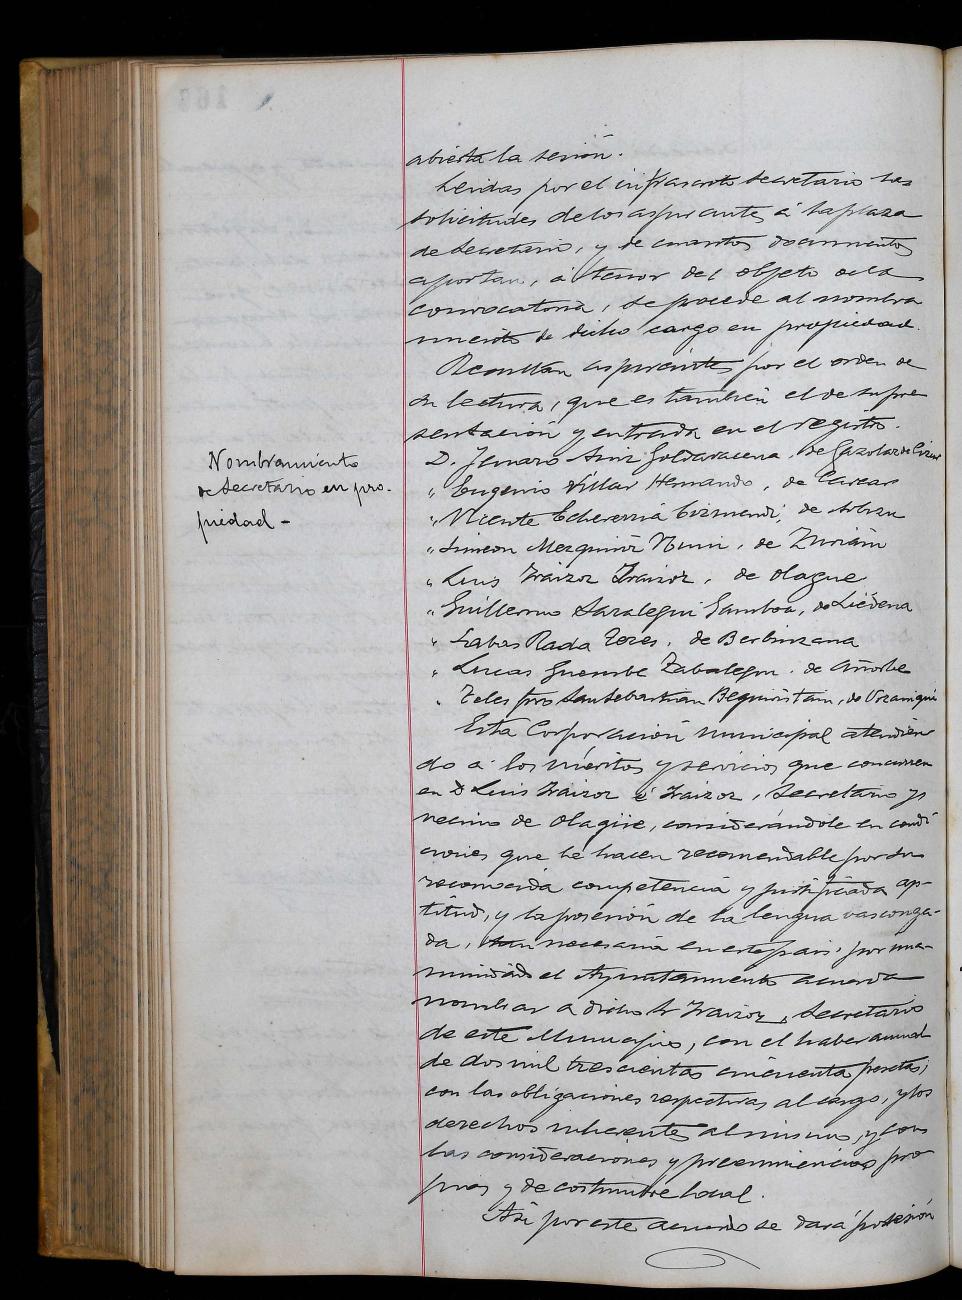 abierta la sesión.
Leidas por el infrascrito Secretario las
solicitudes de los aspirantes á la plaza
de Secretario, y de cuantos documentos
aportan, á tenor del objeto de la
convocatoria, se procede al nombra
miento de dicho cargo en propiedad.
Resultan aspirantes por el orden de
su lectura, que es también el de su pre
sentación y entrada en el registro.
Nombramiento
de Secretario en pro-
piedad -
D. Jenaro Goldaracena, de Gazolaz de Cizur
" Eugenio Villar Hernando, de Carcar
" Vicente Echeverria, de Arbizu
" Simeon Mezquiriz, de Zuriáin
" Luis Iraizoz Iraizoz, de Olagüe
" Guillermo Saralegui Gamboa, de Liédena
" Rada, de Berbinzana
" Lucas Guembe Zabalegui, de Añorbe
" Telesforo Sansebastian Beguiristain, de Urrainqui
Esta Corporación municipal atendien
do á los méritos y servicios que concurren
en D Luis Iraizoz é Iraizoz, Secretario y
vecino de Olagüe, considerándole en condi
ciones que le hacen recomendable por su
reconocida competencia y justificada ap-
titud, y la posesión de la lengua vasconga-
da, tan necesaria en este pais, por una-
nimidad el Ayuntamiento acuerda
nombrar a dicho Sr Iraizoz, Secretario
de este Municipio, con el haber anual
de dos mil trescientas cincuenta pesetas,
con las obligaciones respectivas al cargo, y los
derechos inherentes al mismo, y con
las consideraciones y preeminencias pro
pias y de costumbre local.
Asi por este acuerdo se dará posesión